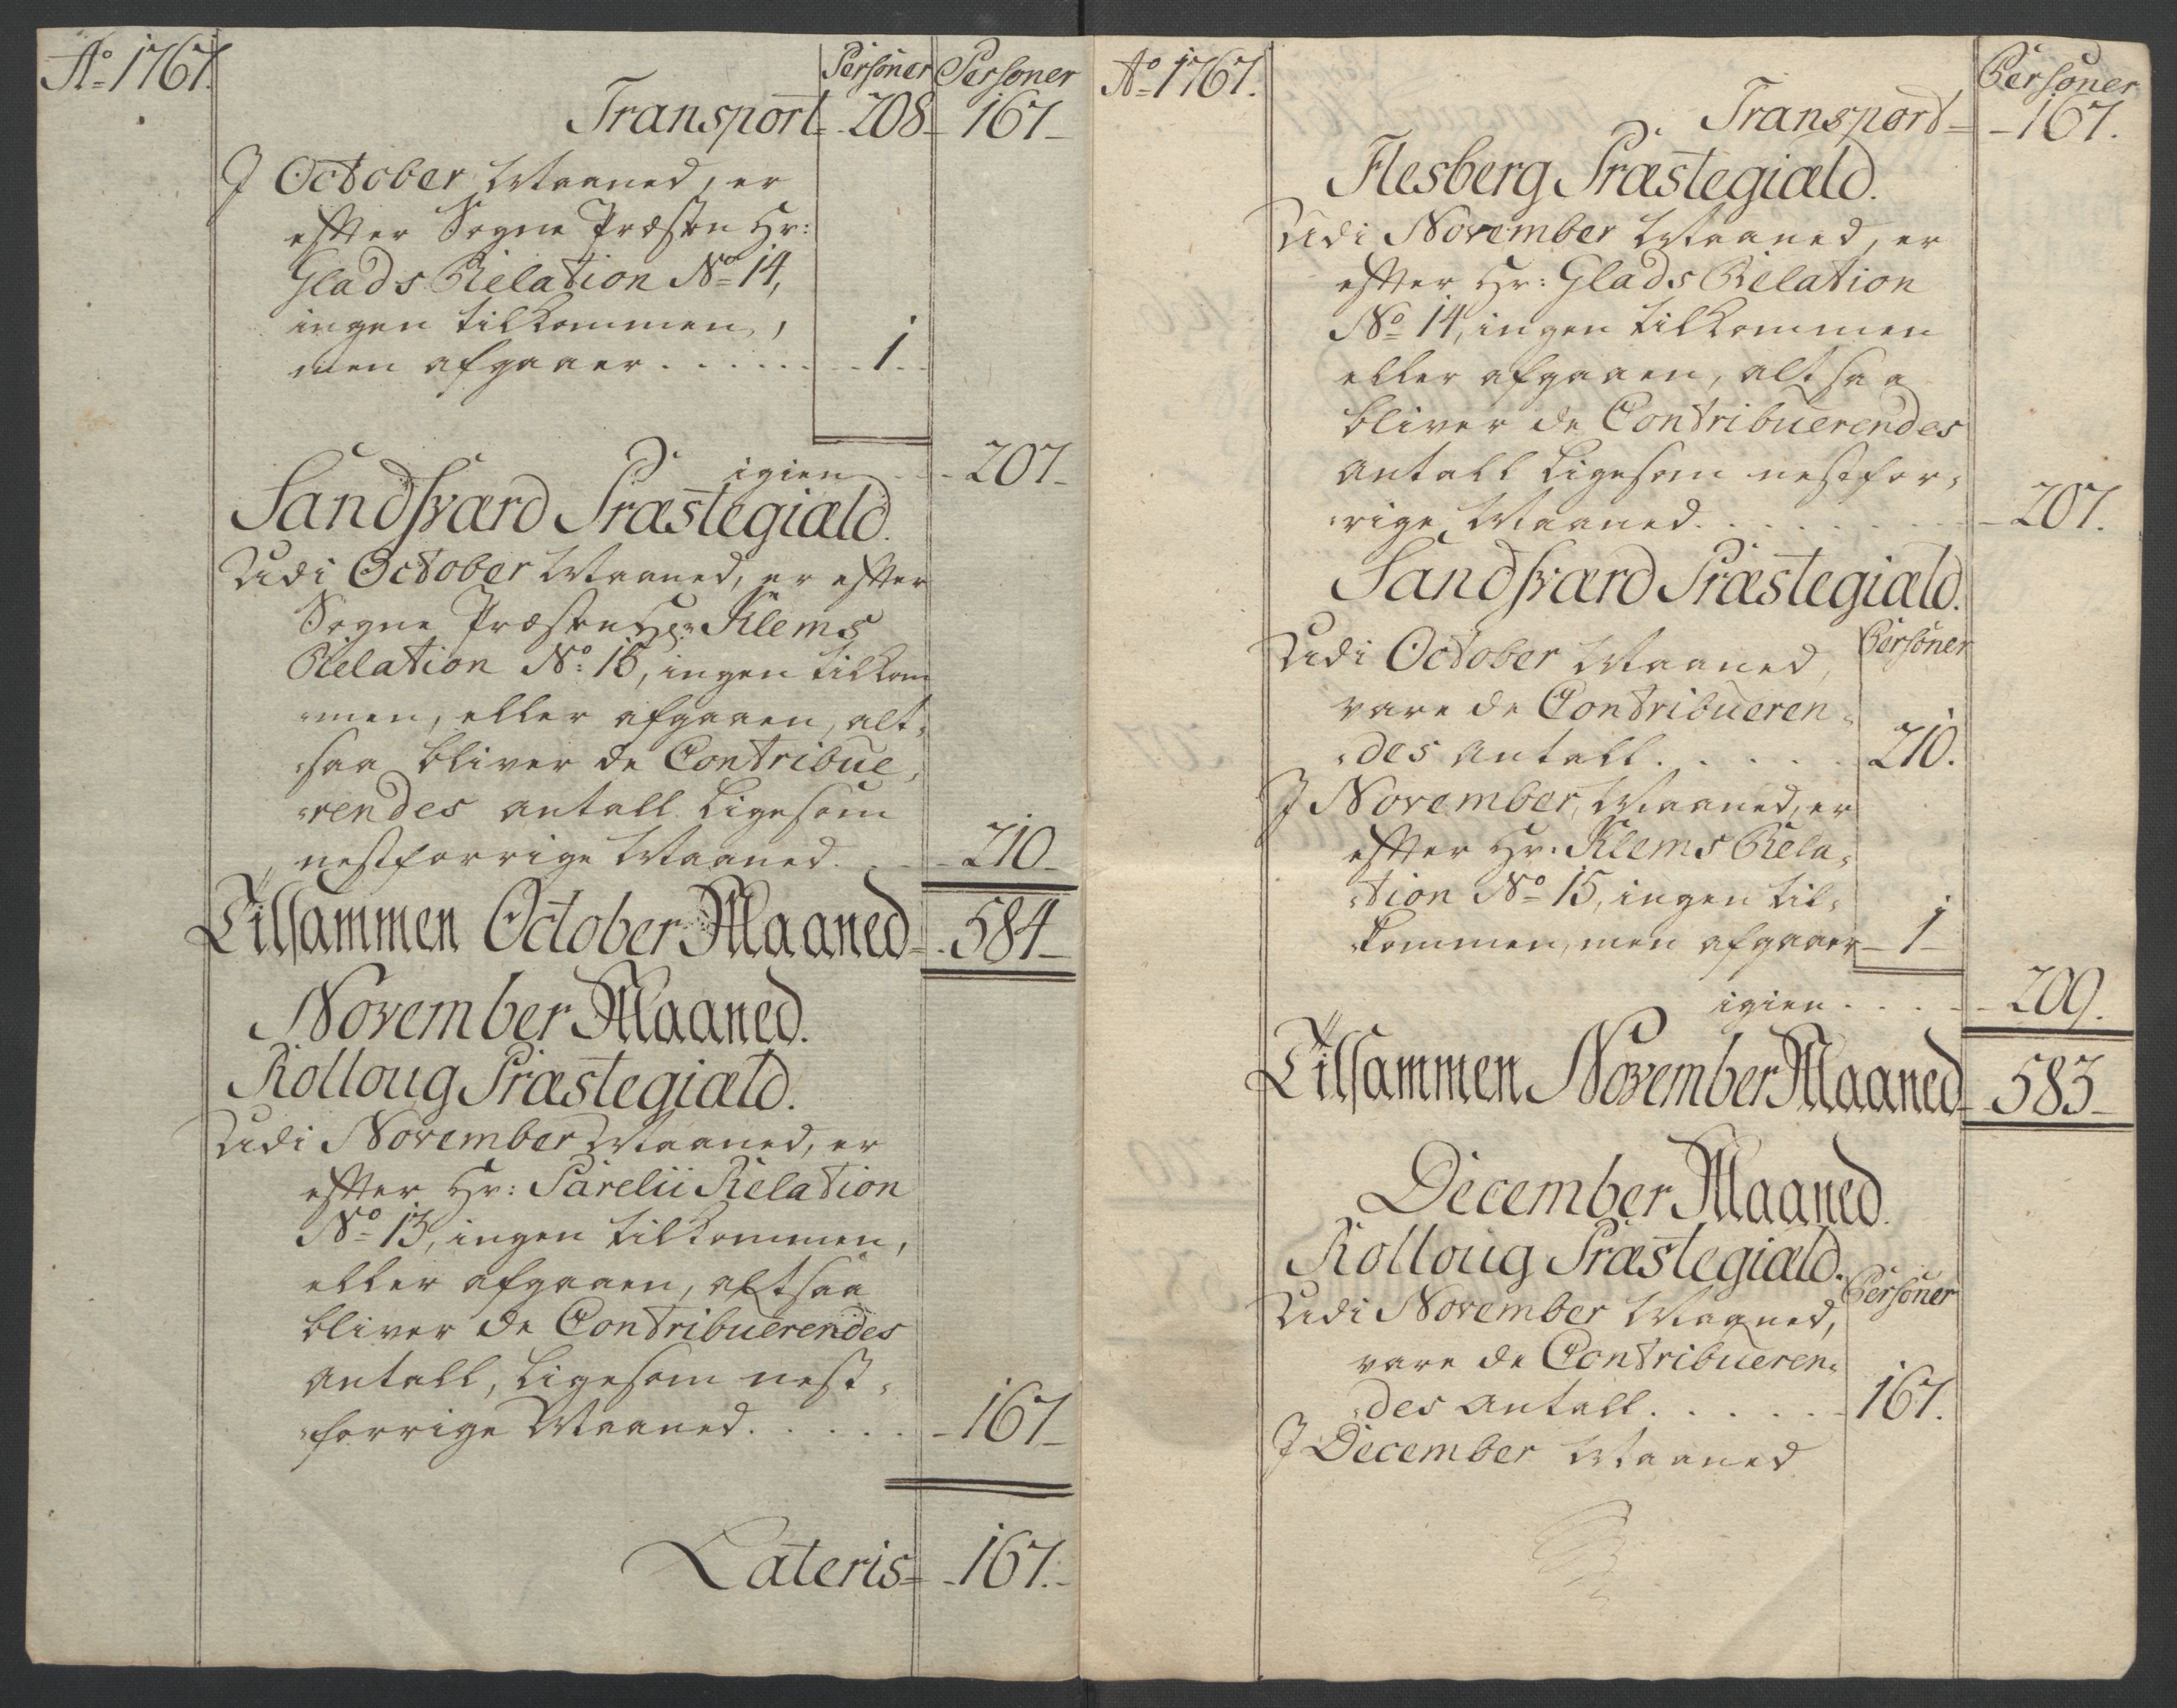 Ao 1767.
Personer Personer
Transport 208 167
I October Maaned, er
efter Sogne Præsten Hr:
Glads Relation No 14,
ingen tilkommen,
men afgaaer . . . . . . 1
igien . . 207
Sandsværd Præstegiæld.
Udi October Maaned, er efter
Sogne Præsten Hr: Klems
Relation No: 15, ingen tilkom
men, eller afgaaen, alt-
saa bliver de Contribue,
rendes antall ligesom
nestforrige Maaned. . . 210
Tilsammen October Maaned 584
November Maaned.
Rolloug Præstegiæld.
Udi November Maaned, er
efter Hr: Parelii Relation
No 13, ingen tilkommen,
eller afgaaen, altsaa
bliver de Contribuerendes
antall, ligesom nest-
forrige Maaned . . . . . 167
Lateris 167.
Ao 1767.
Personer
Transport 167.
Flesberg Præstegiæld.
Udi November Maaned, er
efter Hr: Glads Relation
No 14, ingen tilkommen
eller afgaaen, altsaa
bliver de Contribuerendes
antall ligesom nestfor-
rige Maaned . . . . . . 207.
Sandsværd Præstegiæld.
Personer
Udi October Maaned,
vare de Contribueren-
des antall . . . . . 210.
I November Maaned, er
efter Hr: Klems Rela-
tion No 15, ingen til-
kommen, men afgaaer 1
igien . . . . 209.
Tilsammen November Maaned 583
December Maaned.
Rolloug Præstegiæld.
Personer
Udi November Maaned,
vare de Contribueren-
des antall . . . . . 167.
I December Maaned